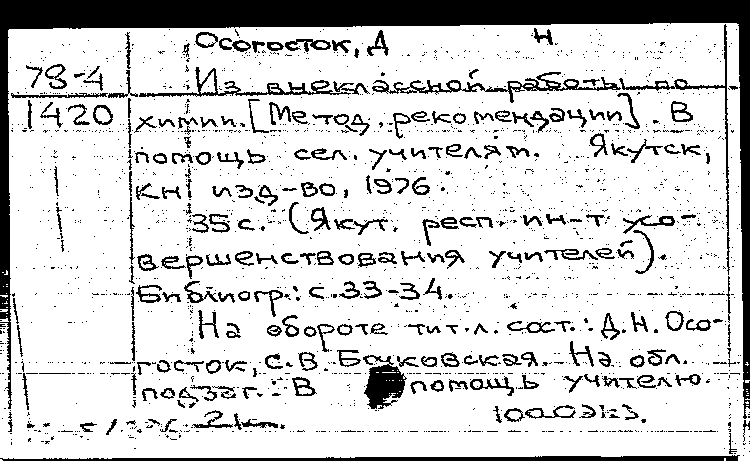 Осогосток, Д Н
78-4 Из внеклассной работы по
1420 химии. [Метод. рекомендации]. В
помощь сел. учителям. Якутск,
Кн изд-во, 1976.
35 с. (Якут. респ. ин-т усо-
вершенствования учителей).
Библиогр.: с. 33-34.
На обороте тит. л. сост.: Д. Н. Осо-
госток, С. В. Бочковская. На обл.
подзаг.: В помощь учителю.
1000экз.